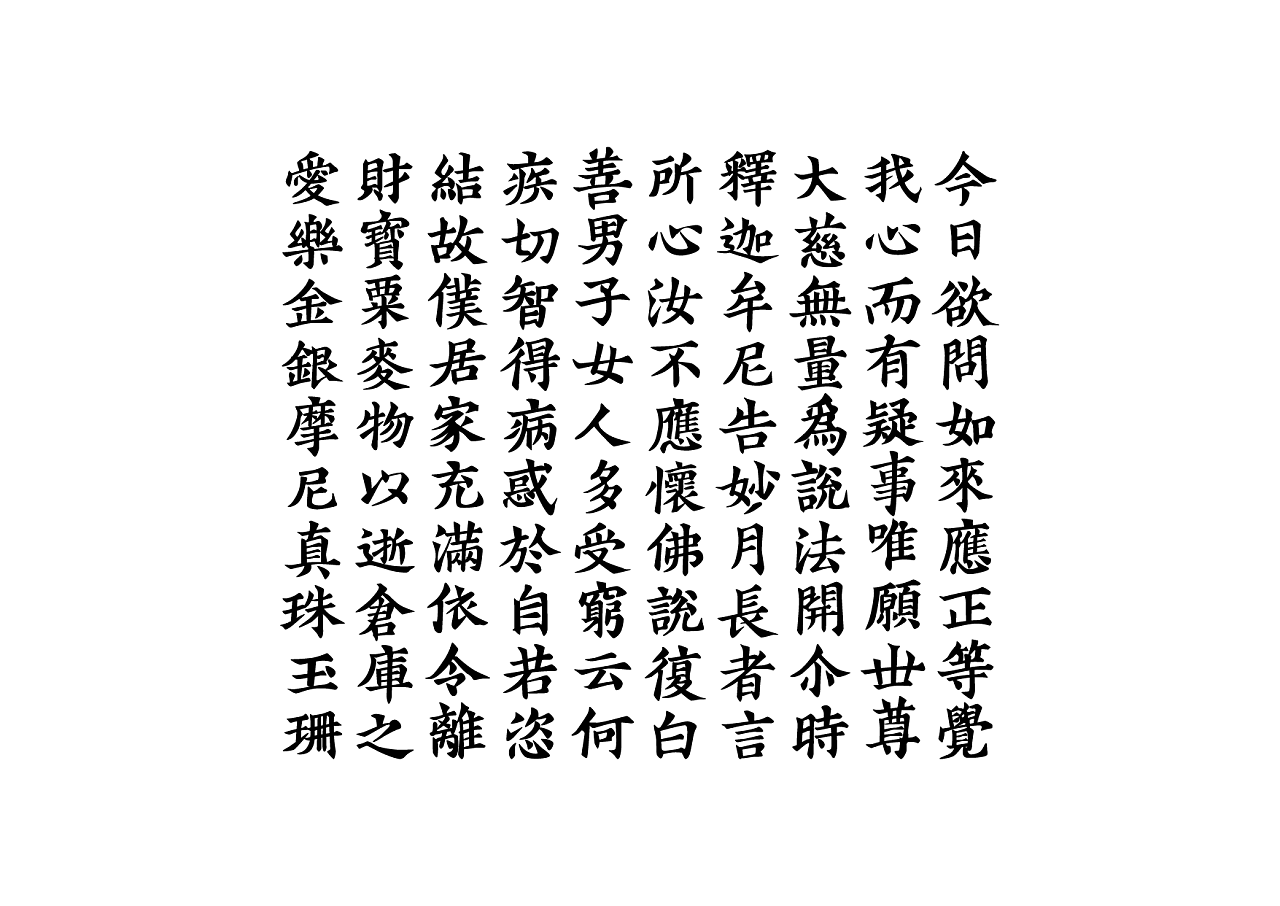 今日欲問如來應正等覺
我心而有疑事唯願世尊
大慈無量爲說法開尒時
釋迦牟尼告妙月長者言
所心汝不應懷佛說復白
善男子女人多受窮云何
疾切智得病惑於自若恣
結故僕居家充滿依令離
財寶粟麥物以逝倉庫之
愛樂金銀摩尼真珠玉珊